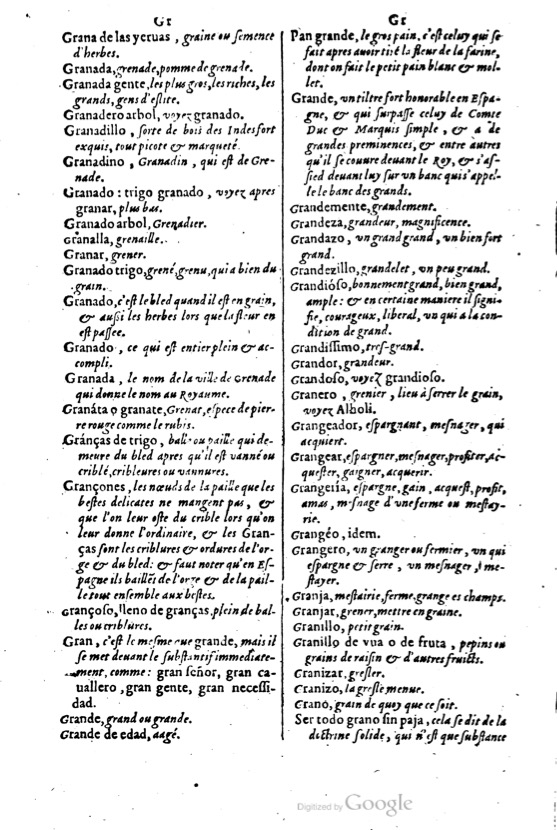 Gr
Grana de las yeruas, graine ou semence
d'herbes.
Granada, grenade, pomme de grenade.
Granada gente, les plus gros, les riches, les
grands, gens d'eslite.
Granadero arbol, voyez granado.
Granadillo, sorte de bois des Indes fort
exquis, tout picoté & marqueté.
Granadino, Granadin, qui est de Gre-
nade.
Granado: trigo granado, voyez apres
granar, plus bas.
Granado arbol, Grenadier.
Granalla, grenaille.
Granar, grener.
Granado trigo, grené, grenu, qui a bien du
grain.
Granado, c'est le bled quand il est en grain,
& aussi les herbes lors que la fleur en
est passee.
Granado, ce qui est entier plein & ac-
compli.
Granada, le nom de la ville de Grenade
qui donne le nom au Royaume.
Granáta o granate, Grenat, espece de pier-
re rouge comme le rubis.
Gránças de trigo, balle ou paille qui de-
meure du bled apres qu'il est vanné ou
criblé, cribleures ou vannures.
Grançones, les nœuds de la paille que les
bestes delicates ne mangent pas, &
que l'on leur oste du crible lors qu'on
leur donne l'ordinaire, & les Gran-
ças sont les criblures & ordures de l'or-
ge & du bled: & faut noter qu'en Es-
pagne ils baillēt de l'orge & de la pail-
le tout ensemble aux bestes.
Grançoso, lleno de granças, plein de bal-
les ou criblures.
Gran, c'est le mesme que grande, mais il
se met deuant le substantif immediate-
ment, comme: gran señor, gran ca-
uallero, gran gente, gran necessi-
dad.
Grande, grand ou grande.
Grande de edad, aagé.
Gr
Pan grande, le gros pain, c'est celuy qui se
fait apres auoir tiré la fleur de la farine,
dont on fait le petit pain blanc & mol-
let.
Grande, vn tiltre fort honorable en Espa-
gne, & qui surpasse celuy de Comte
Duc & Marquis simple, & a de
grandes preminences, & entre autres
qu'il se couure deuant le Roy, & s'as-
sied deuant luy sur vn banc qui s'appel-
le le banc des grands.
Grandemente, grandement.
Grandeza, grandeur, magnificence.
Grandazo, vn grand grand, vn bien fort
grand.
Grandezillo, grandelet, vn peu grand.
Grandióso, bonnement grand, bien grand,
ample: & en certaine maniere il signi-
fie, courageux, liberal, vn qui a la con-
dition de grand.
Grandissimo, tres-grand.
Grandor, grandeur.
Grandoso, voyez grandioso.
Granero, grenier, lieu à serrer le grain,
voyez Alholi.
Grangeador, espargnant, mesnager, qui
acquiert.
Grangear, espargner, mesnager, profiter, ac-
quester, gaigner, acquerir.
Grangería, espargne, gain, acquest, profit,
amas, mesnage d'vne ferme ou mestay-
rie.
Grangéo, idem.
Grangero, vn granger ou fermier, vn qui
espargne & serre, vn mesnager, me-
stayer.
Granja, mestairie, ferme, grange es champs.
Granjar, grener, mettre en graine.
Granillo, petit grain.
Granillo de vua o de fruta, pepins ou
grains de raisin & d'autres fruicts.
Granizar, gresler.
Granizo, la gresle menue.
Grano, grain de quoy que ce soit.
Ser todo grano sin paja, cela se dit de la
doctrine solide, qui n'est que substance
Digitized by Google